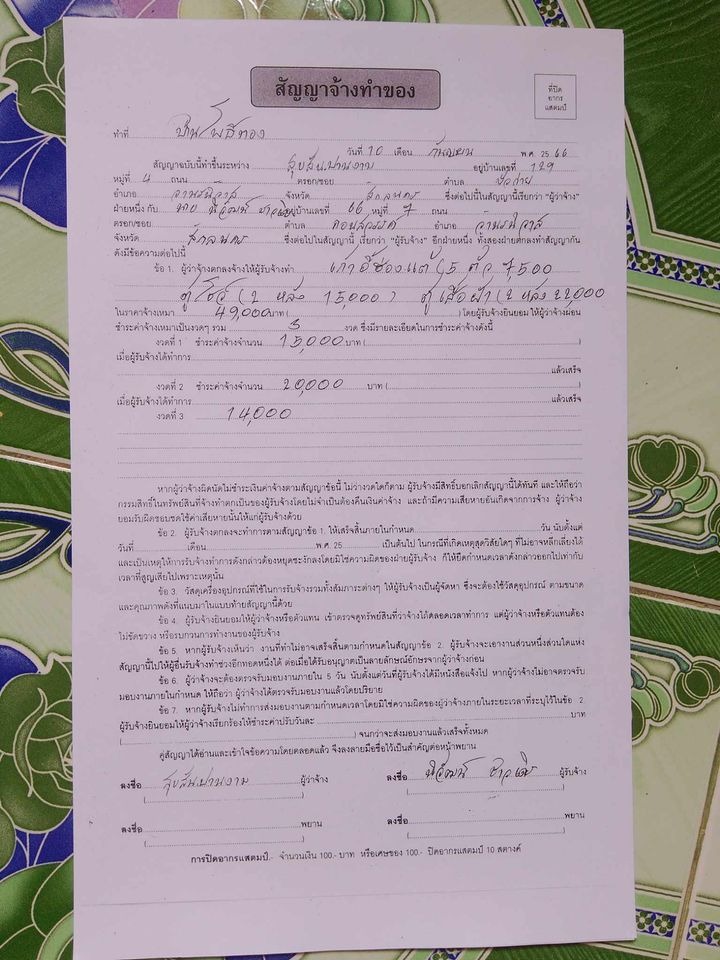 สัญญาจ้างทำของ
ที่ปิด
อากร
แสตมป์
ทำที่ บ้านโพธิ์ทอง
วันที่ 10 เดือน กันยายน พ.ศ. 2566
สัญญาฉบับนี้ทำขึ้นระหว่าง สุขสันปานงาม อยู่บ้านเลขที่ 129
หมู่ที่ 4 ถนน ตรอก/ซอย ตำบล
อำเภอ วานรนิวาส จังหวัด สกลนคร ซึ่งต่อไปในสัญญานี้เรียกว่า "ผู้ว่าจ้าง"
ฝ่ายหนึ่ง กับ นาย นิวัฒน์ อยู่บ้านเลขที่ 66 หมู่ที่ 7 ถนน
ตรอก/ซอย ตำบล คอนสวรรค์ อำเภอ วานรนิวาส
จังหวัด สกลนคร ซึ่งต่อไปในสัญญานี้ เรียกว่า "ผู้รับจ้าง" อีกฝ่ายหนึ่ง ทั้งสองฝ่ายตกลงทำสัญญากัน
ดังมีข้อความต่อไปนี้
ข้อ 1. ผู้ว่าจ้างตกลงจ้างให้ผู้รับจ้างทำ (5 ตัว 7,500
ตู้โชว์ (2 หลัง 15,000) ตู้เสื้อผ้า (2 หลัง 22,000
ในราคาจ้างเหมา 49,000 บาท ( ) โดยผู้รับจ้างยินยอม ให้ผู้ว่าจ้างผ่อน
ชำระค่าจ้างเหมาเป็นงวดๆ รวม 3 งวด ซึ่งมีรายละเอียดในการชำระค่าจ้างดังนี้
งวดที่ 1 ชำระค่าจ้างจำนวน 15,000 บาท ( )
เมื่อผู้รับจ้างได้ทำการ
แล้วเสร็จ
งวดที่ 2 ชำระค่าจ้างจำนวน 20,000 บาท ( )
เมื่อผู้รับจ้างได้ทำการ แล้วเสร็จ
งวดที่ 3 14,000
หากผู้ว่าจ้างผิดนัดไม่ชำระเงินค่าจ้างตามสัญญาข้อนี้ ไม่ว่างวดใดก็ตาม ผู้รับจ้างมีสิทธิ์บอกเลิกสัญญานี้ได้ทันที และให้ถือว่า
กรรมสิทธิ์ในทรัพย์สินที่จ้างทำตกเป็นของผู้รับจ้างโดยไม่จำเป็นต้องคืนเงินค่าจ้าง และถ้ามีความเสียหายอันเกิดจากการจ้าง ผู้ว่าจ้าง
ยอมรับผิดชอบชดใช้ค่าเสียหายนั้นให้แก่ผู้รับจ้างด้วย
ข้อ 2. ผู้รับจ้างตกลงจะทำการตามสัญญาข้อ 1. ให้เสร็จสิ้นภายในกำหนด วัน นับตั้งแต่
วันที่ เดือน พ.ศ. 25 เป็นต้นไป ในกรณีที่เกิดเหตุสุดวิสัยใดๆ ที่ไม่อาจหลีกเลี่ยงได้
และเป็นเหตุให้การรับจ้างทำการดังกล่าวต้องหยุดชะงักลงโดยมิใช่ความผิดของฝ่ายผู้รับจ้าง ก็ให้ยืดกำหนดเวลาดังกล่าวออกไปเท่ากับ
เวลาที่สูญเสียไปเพราะเหตุนั้น
ข้อ 3. วัสดุเครื่องอุปกรณ์ที่ใช้ในการรับจ้างรวมทั้งสัมภาระต่างๆ ให้ผู้รับจ้างเป็นผู้จัดหา ซึ่งจะต้องใช้วัสดุอุปกรณ์ ตามขนาด
และคุณภาพดังที่แนบมาในแบบท้ายสัญญานี้ด้วย
ข้อ 4. ผู้รับจ้างยินยอมให้ผู้ว่าจ้างหรือตัวแทน เข้าตรวจดูทรัพย์สินที่ว่าจ้างได้ตลอดเวลาทำการ แต่ผู้ว่าจ้างหรือตัวแทนต้อง
ไม่ขัดขวาง หรือรบกวนการทำงานของผู้รับจ้าง
ข้อ 5. หากผู้รับจ้างเห็นว่า งานที่ทำไม่อาจเสร็จสิ้นตามกำหนดในสัญญาข้อ 2. ผู้รับจ้างจะเอางานส่วนหนึ่งส่วนใดแห่ง
สัญญานี้ไปให้ผู้อื่นรับจ้างทำช่วงอีกทอดหนึ่งได้ ต่อเมื่อได้รับอนุญาตเป็นลายลักษณ์อักษรจากผู้ว่าจ้างก่อน
ข้อ 6. ผู้ว่าจ้างจะต้องตรวจรับมอบงานภายใน 5 วัน นับตั้งแต่วันที่ผู้รับจ้างได้มีหนังสือแจ้งไป หากผู้ว่าจ้างไม่อาจตรวจรับ
มอบงานภายในกำหนด ให้ถือว่า ผู้ว่าจ้างได้ตรวจรับมอบงานแล้วโดยปริยาย
ข้อ 7. หากผู้รับจ้างไม่ทำการส่งมอบงานตามกำหนดเวลาโดยมิใช่ความผิดของผู้ว่าจ้างภายในระยะเวลาที่ระบุไว้ในข้อ 2.
ผู้รับจ้างยินยอมให้ผู้ว่าจ้างเรียกร้องให้ชำระค่าปรับวันละ บาท
( ) จนกว่าจะส่งมอบงานแล้วเสร็จทั้งหมด
คู่สัญญาได้อ่านและเข้าใจข้อความโดยตลอดแล้ว จึงลงลายมือชื่อไว้เป็นสำคัญต่อหน้าพยาน
ลงชื่อ สุขสันปานงาม ผู้ว่าจ้าง ลงชื่อ นิวัฒน์ ผู้รับจ้าง
( ) ( )
ลงชื่อ พยาน ลงชื่อ พยาน
( ) ( )
การปิดอากรแสตมป์.- จำนวนเงิน 100.- บาท หรือเศษของ 100.- ปิดอากรแสตมป์ 10 สตางค์